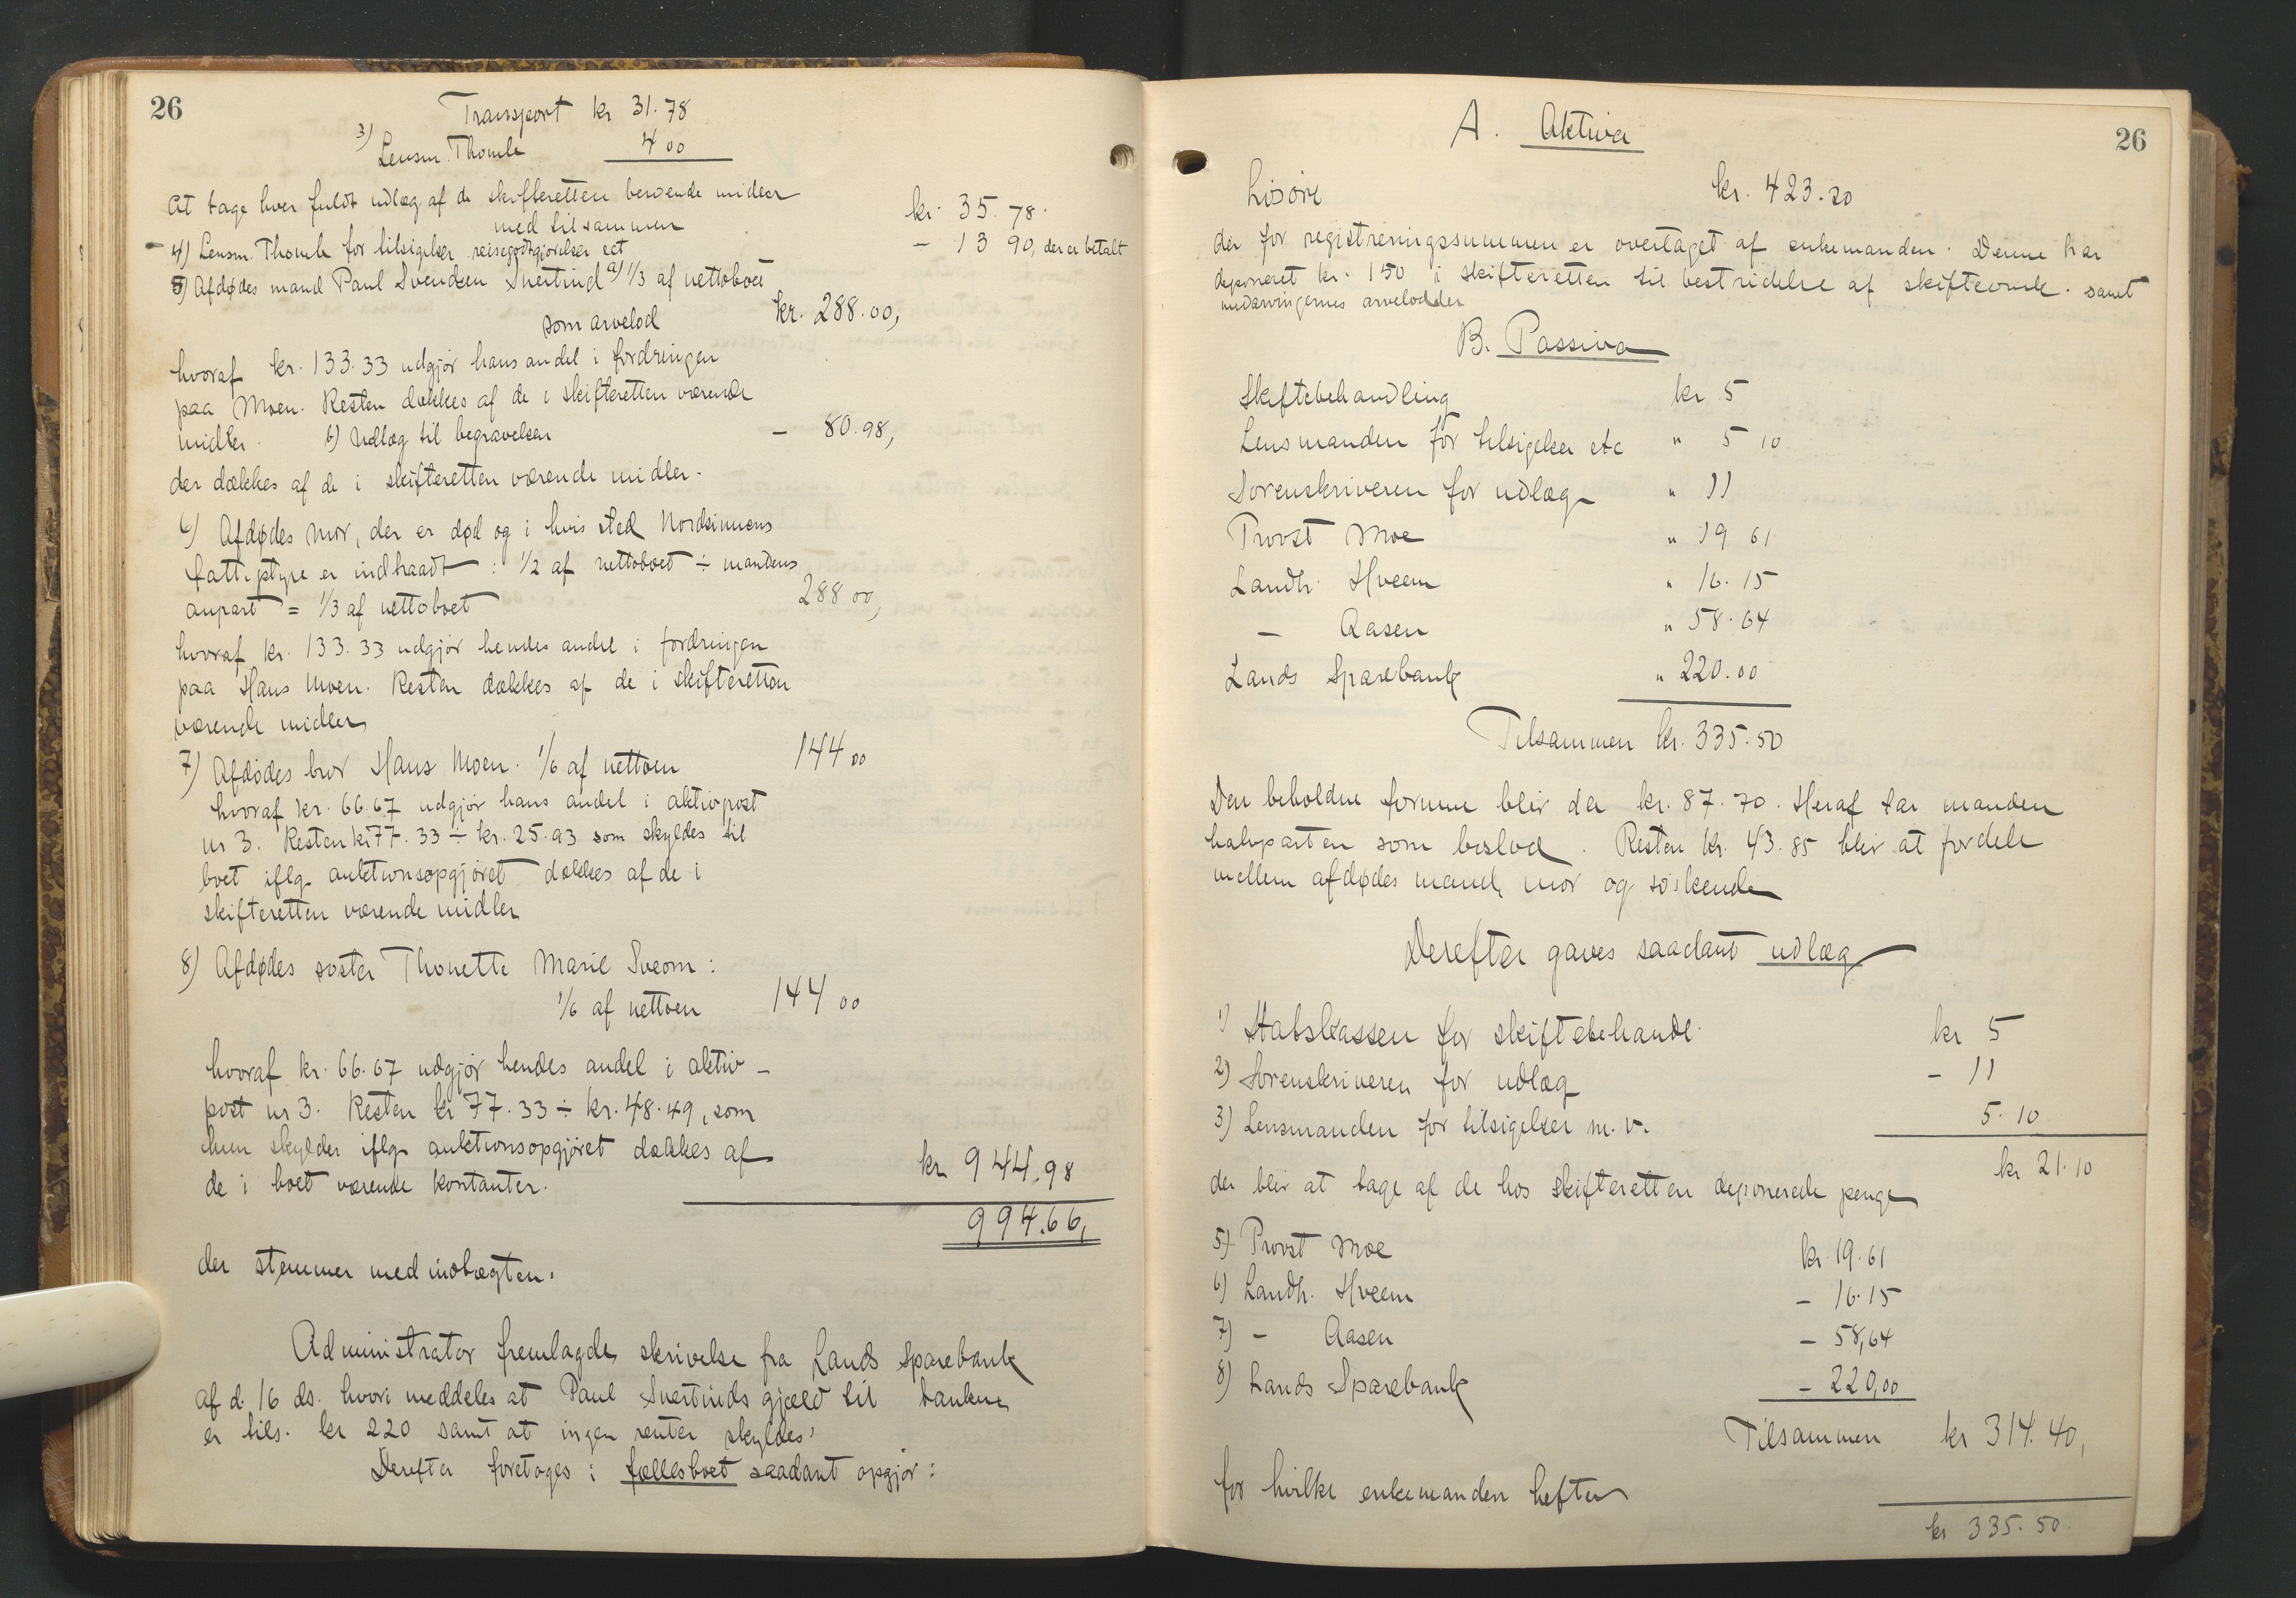 26
Transport kr 31.78
3) Lensm. Thomle 4 00
At tage hver fuldt udlæg af de skifteretten beroende midler
med tilsammen kr. 35.78.
- 4) Lensm. Thomle for tilsigelser reisegodtgjørelser ect - 13 90, der er betalt
5) Afdødes mand Paul Svendsen Svertind a) 1/3 af nettoboet
som arvelod kr. 288.00,
hvoraf kr. 133.33 udgjør hans andel i fordringen
paa Moen. Resten dækkes af de i skifteretten værende
midler. b) Udlæg til begravelsen - 80.98,
der dækkes af de i skifteretten værende midler.
6) Afdødes mor, der er død og i hvis sted Nordsinnens
fattigstyre er indtraadt: 1/2 af nettoboet ÷ mandens
anpart = 1/3 af nettoboet 288 00,
hvoraf kr. 133.33 udgjør hendes andel i fordringen
paa Hans Moen. Resten dækkes af de i skifteretten
værende midler
7) Afdødes bror Hans Moen. 1/6 af nettoen 144 00
hvoraf kr. 66.67 udgjør hans andel i aktivpost
nr 3. Resten kr 77.33 ÷ kr. 25.93 som skyldes til
boet iflg. auktionsopgjøret dækkes af de i
skifteretten værende midler
8) Afdødes søster Thonette Marie Sveom:
1/6 af nettoen 144 00
hvoraf kr. 66.67 udgjør hendes andel i aktiv-
post nr 3. Resten kr 77.33 ÷ kr. 48.49, som
hun skylder iflg auktionsopgjøret dækkes af
de i boet værende kontanter. kr 944.98
994.66,
der stemmer med indtægten.
Administrator fremlagde skrivelse fra Lands Sparebank
af d. 16 ds. hvori meddeles at Paul Svertinds gjæld til banken
er tils. kr 220 samt at ingen renter skyldes.
Derefter foretoges i fællesboet saadant opgjør:
26
A. Aktiva
Løsøre kr. 423.20
der for registreringssummen er overtaget af enkemanden. Denne har
deponeret kr. 150 i skifteretten til bestridelse af skifteomk. samt
medarvingernes arvelodder
B. Passiva
Skiftebehandling kr 5
Lensmanden for tilsigelser etc " 5 10
Sorenskriveren for udlæg " 11
Provst Moe " 19 61
Landh. Hveem " 16.15
- Aasen " 58.64
Lands Sparebank " 220.00
Tilsammen kr. 335.50
Den beholdne formue blir da kr. 87.70. Heraf tar manden
halvparten som boslod. Resten kr. 43.85 blir at fordele
mellem afdødes mand, mor og søskende
Derefter gaves saadant udlæg
1) Statskassen for skiftebehandl. kr 5
2) Sorenskriveren for udlæg - 11
3) Lensmanden for tilsigelser m.v. 5.10
kr 21.10
der blir at tage af de hos skifteretten deponerede penge
5) Provst Moe kr. 19.61
6) Landh. Hveem - 16.15
7) - Aasen - 58,64
8) Lands Sparebank - 220,00
Tilsammen kr 314.40,
for hvilke enkemanden hefter
kr 335.50.